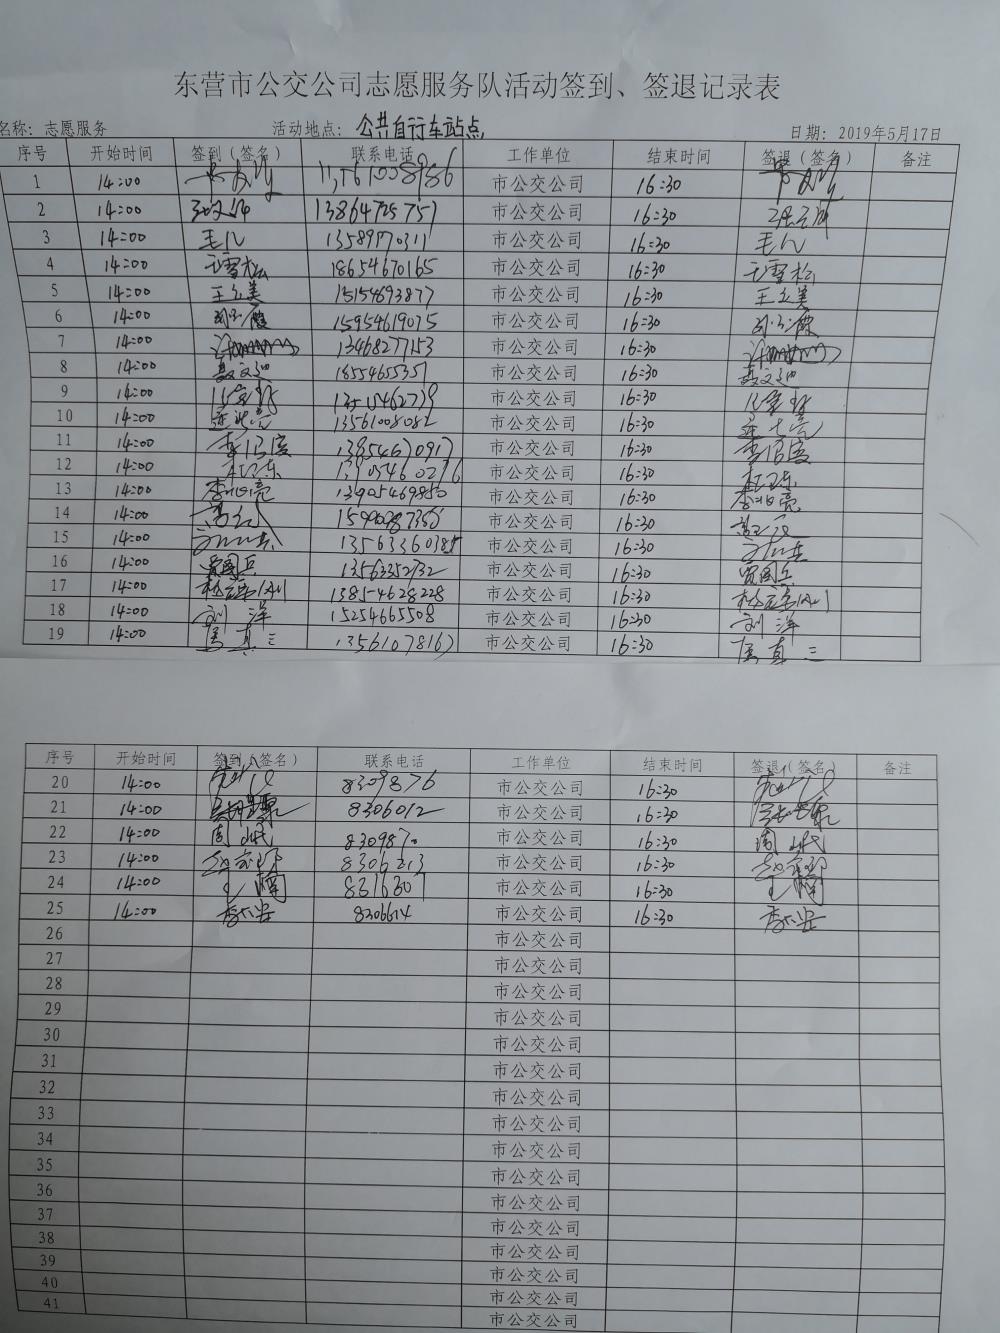 东营市公交公司志愿服务队活动签到、签退记录表
名称: 志愿服务 活动地点: 公共自行车站点 日期: 2019年5月17日
序号 开始时间 签到(签名) 联系电话 工作单位 结束时间 签退(签名) 备注
1 14:00 市公交公司 16:30
2 14:00 13864725751 市公交公司 16:30
3 14:00 毛儿 13589970311 市公交公司 16:30 毛儿
4 14:00 王雪松 18654670165 市公交公司 16:30 王雪松
5 14:00 王立美 15154693877 市公交公司 16:30 王立美
6 14:00 15954619075 市公交公司 16:30
7 14:00 13468277153 市公交公司 16:30
8 14:00 聂文迎 1855465535 市公交公司 16:30 聂文迎
9 14:00 市公交公司 16:30
10 14:00 13561008082 市公交公司 16:30
11 14:00 13854670917 市公交公司 16:30
12 14:00 杜卫东 13905460276 市公交公司 16:30 杜卫东
13 14:00 13905469850 市公交公司 16:30
14 14:00 市公交公司 16:30
15 14:00 市公交公司 16:30
16 14:00 贾国兵 13563352732 市公交公司 16:30 贾国兵
17 14:00 13854628228 市公交公司 16:30
18 14:00 刘洋 15254665508 市公交公司 16:30 刘洋
19 14:00 13561078167 市公交公司 16:30
序号 开始时间 签到(签名) 联系电话 工作单位 结束时间 签退(签名) 备注
20 14:00 8309876 市公交公司 16:30
21 14:00 8306012 市公交公司 16:30
22 14:00 830987 市公交公司 16:30
23 14:00 8306213 市公交公司 16:30
24 14:00 王楠 8316301 市公交公司 16:30 王楠
25 14:00 8306614 市公交公司 16:30
26 市公交公司
27 市公交公司
28 市公交公司
29 市公交公司
30 市公交公司
31 市公交公司
32 市公交公司
33 市公交公司
34 市公交公司
35 市公交公司
36 市公交公司
37 市公交公司
38 市公交公司
39 市公交公司
40 市公交公司
41 市公交公司